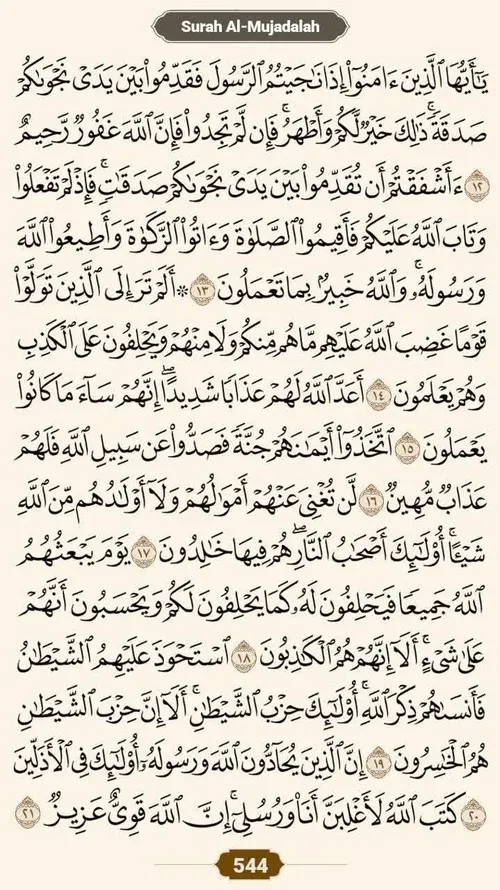 Surah Al-Mujadalah
يَـٰٓأَيُّهَا ٱلَّذِينَ ءَامَنُوٓا۟ إِذَا نَـٰجَيْتُمُ ٱلرَّسُولَ فَقَدِّمُوا۟ بَيْنَ يَدَىْ نَجْوَىٰكُمْ
صَدَقَةً ۚ ذَٰلِكَ خَيْرٌ لَّكُمْ وَأَطْهَرُ ۚ فَإِن لَّمْ تَجِدُوا۟ فَإِنَّ ٱللَّهَ غَفُورٌ رَّحِيمٌ
١٢ ءَأَشْفَقْتُمْ أَن تُقَدِّمُوا۟ بَيْنَ يَدَىْ نَجْوَىٰكُمْ صَدَقَـٰتٍ ۚ فَإِذْ لَمْ تَفْعَلُوا۟
وَتَابَ ٱللَّهُ عَلَيْكُمْ فَأَقِيمُوا۟ ٱلصَّلَوٰةَ وَءَاتُوا۟ ٱلزَّكَوٰةَ وَأَطِيعُوا۟ ٱللَّهَ
وَرَسُولَهُۥ ۚ وَٱللَّهُ خَبِيرٌۢ بِمَا تَعْمَلُونَ ١٣ ۞ أَلَمْ تَرَ إِلَى ٱلَّذِينَ تَوَلَّوْا۟
قَوْمًا غَضِبَ ٱللَّهُ عَلَيْهِم مَّا هُم مِّنكُمْ وَلَا مِنْهُمْ وَيَحْلِفُونَ عَلَى ٱلْكَذِبِ
وَهُمْ يَعْلَمُونَ ١٤ أَعَدَّ ٱللَّهُ لَهُمْ عَذَابًا شَدِيدًا ۖ إِنَّهُمْ سَآءَ مَا كَانُوا۟
يَعْمَلُونَ ١٥ ٱتَّخَذُوٓا۟ أَيْمَـٰنَهُمْ جُنَّةً فَصَدُّوا۟ عَن سَبِيلِ ٱللَّهِ فَلَهُمْ
عَذَابٌ مُّهِينٌ ١٦ لَّن تُغْنِىَ عَنْهُمْ أَمْوَٰلُهُمْ وَلَآ أَوْلَـٰدُهُم مِّنَ ٱللَّهِ
شَيْـًٔا ۚ أُو۟لَـٰٓئِكَ أَصْحَـٰبُ ٱلنَّارِ ۖ هُمْ فِيهَا خَـٰلِدُونَ ١٧ يَوْمَ يَبْعَثُهُمُ
ٱللَّهُ جَمِيعًا فَيَحْلِفُونَ لَهُۥ كَمَا يَحْلِفُونَ لَكُمْ وَيَحْسَبُونَ أَنَّهُمْ
عَلَىٰ شَىْءٍ ۚ أَلَآ إِنَّهُمْ هُمُ ٱلْكَـٰذِبُونَ ١٨ ٱسْتَحْوَذَ عَلَيْهِمُ ٱلشَّيْطَـٰنُ
فَأَنسَىٰهُمْ ذِكْرَ ٱللَّهِ ۚ أُو۟لَـٰٓئِكَ حِزْبُ ٱلشَّيْطَـٰنِ ۚ أَلَآ إِنَّ حِزْبَ ٱلشَّيْطَـٰنِ
هُمُ ٱلْخَـٰسِرُونَ ١٩ إِنَّ ٱلَّذِينَ يُحَآدُّونَ ٱللَّهَ وَرَسُولَهُۥٓ أُو۟لَـٰٓئِكَ فِى ٱلْأَذَلِّينَ
٢٠ كَتَبَ ٱللَّهُ لَأَغْلِبَنَّ أَنَا۠ وَرُسُلِىٓ ۚ إِنَّ ٱللَّهَ قَوِىٌّ عَزِيزٌ ٢١
544